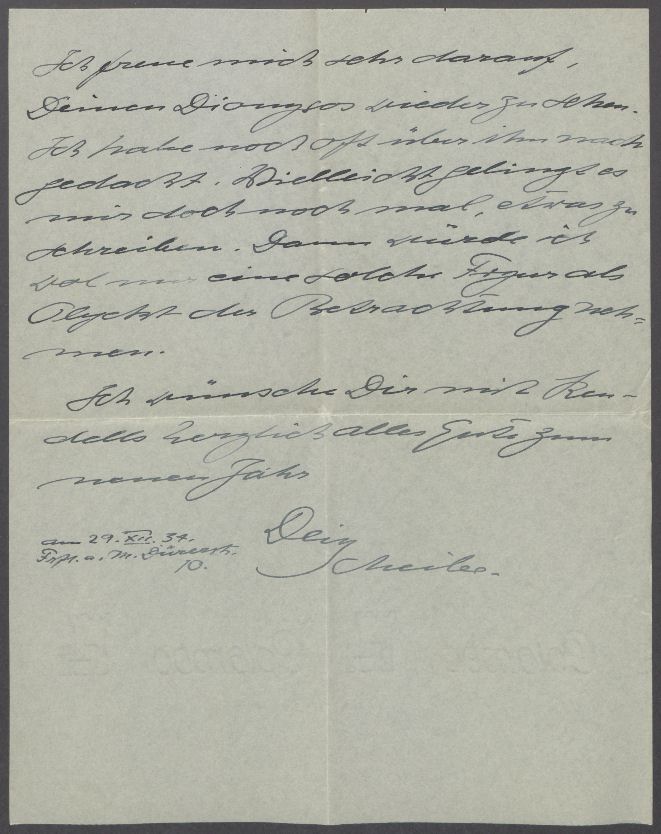 Ich freue mich sehr darauf,
Deinen Dionysos wieder zu sehen.
Ich habe noch oft über ihn nach
gedacht. Vielleicht gelingt es
mir doch noch mal, etwas zu
schreiben. Dann würde ich
wol nur eine solche Figur als
Objekt der Betrachtung neh=
men.
Ich wünsche Dir mit Ken-
dells herzlich alles Gute zum
neuen Jahr
Dein
am 29. XII. 34.
Frft. a. M. Dürerstr.
10.